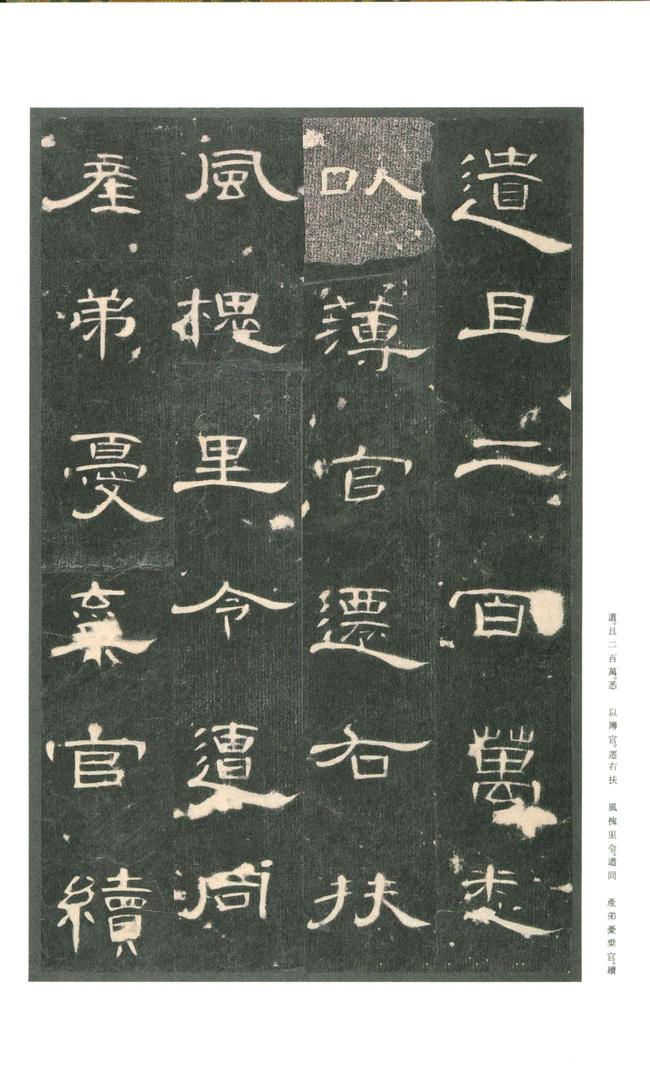 遺且二百萬悉
以薄官遷右扶
風槐里令遭同
產弟憂棄官續
遺。且二百萬。悉　以簿官。遷右扶　風槐里令。遭同　產弟憂棄官。續